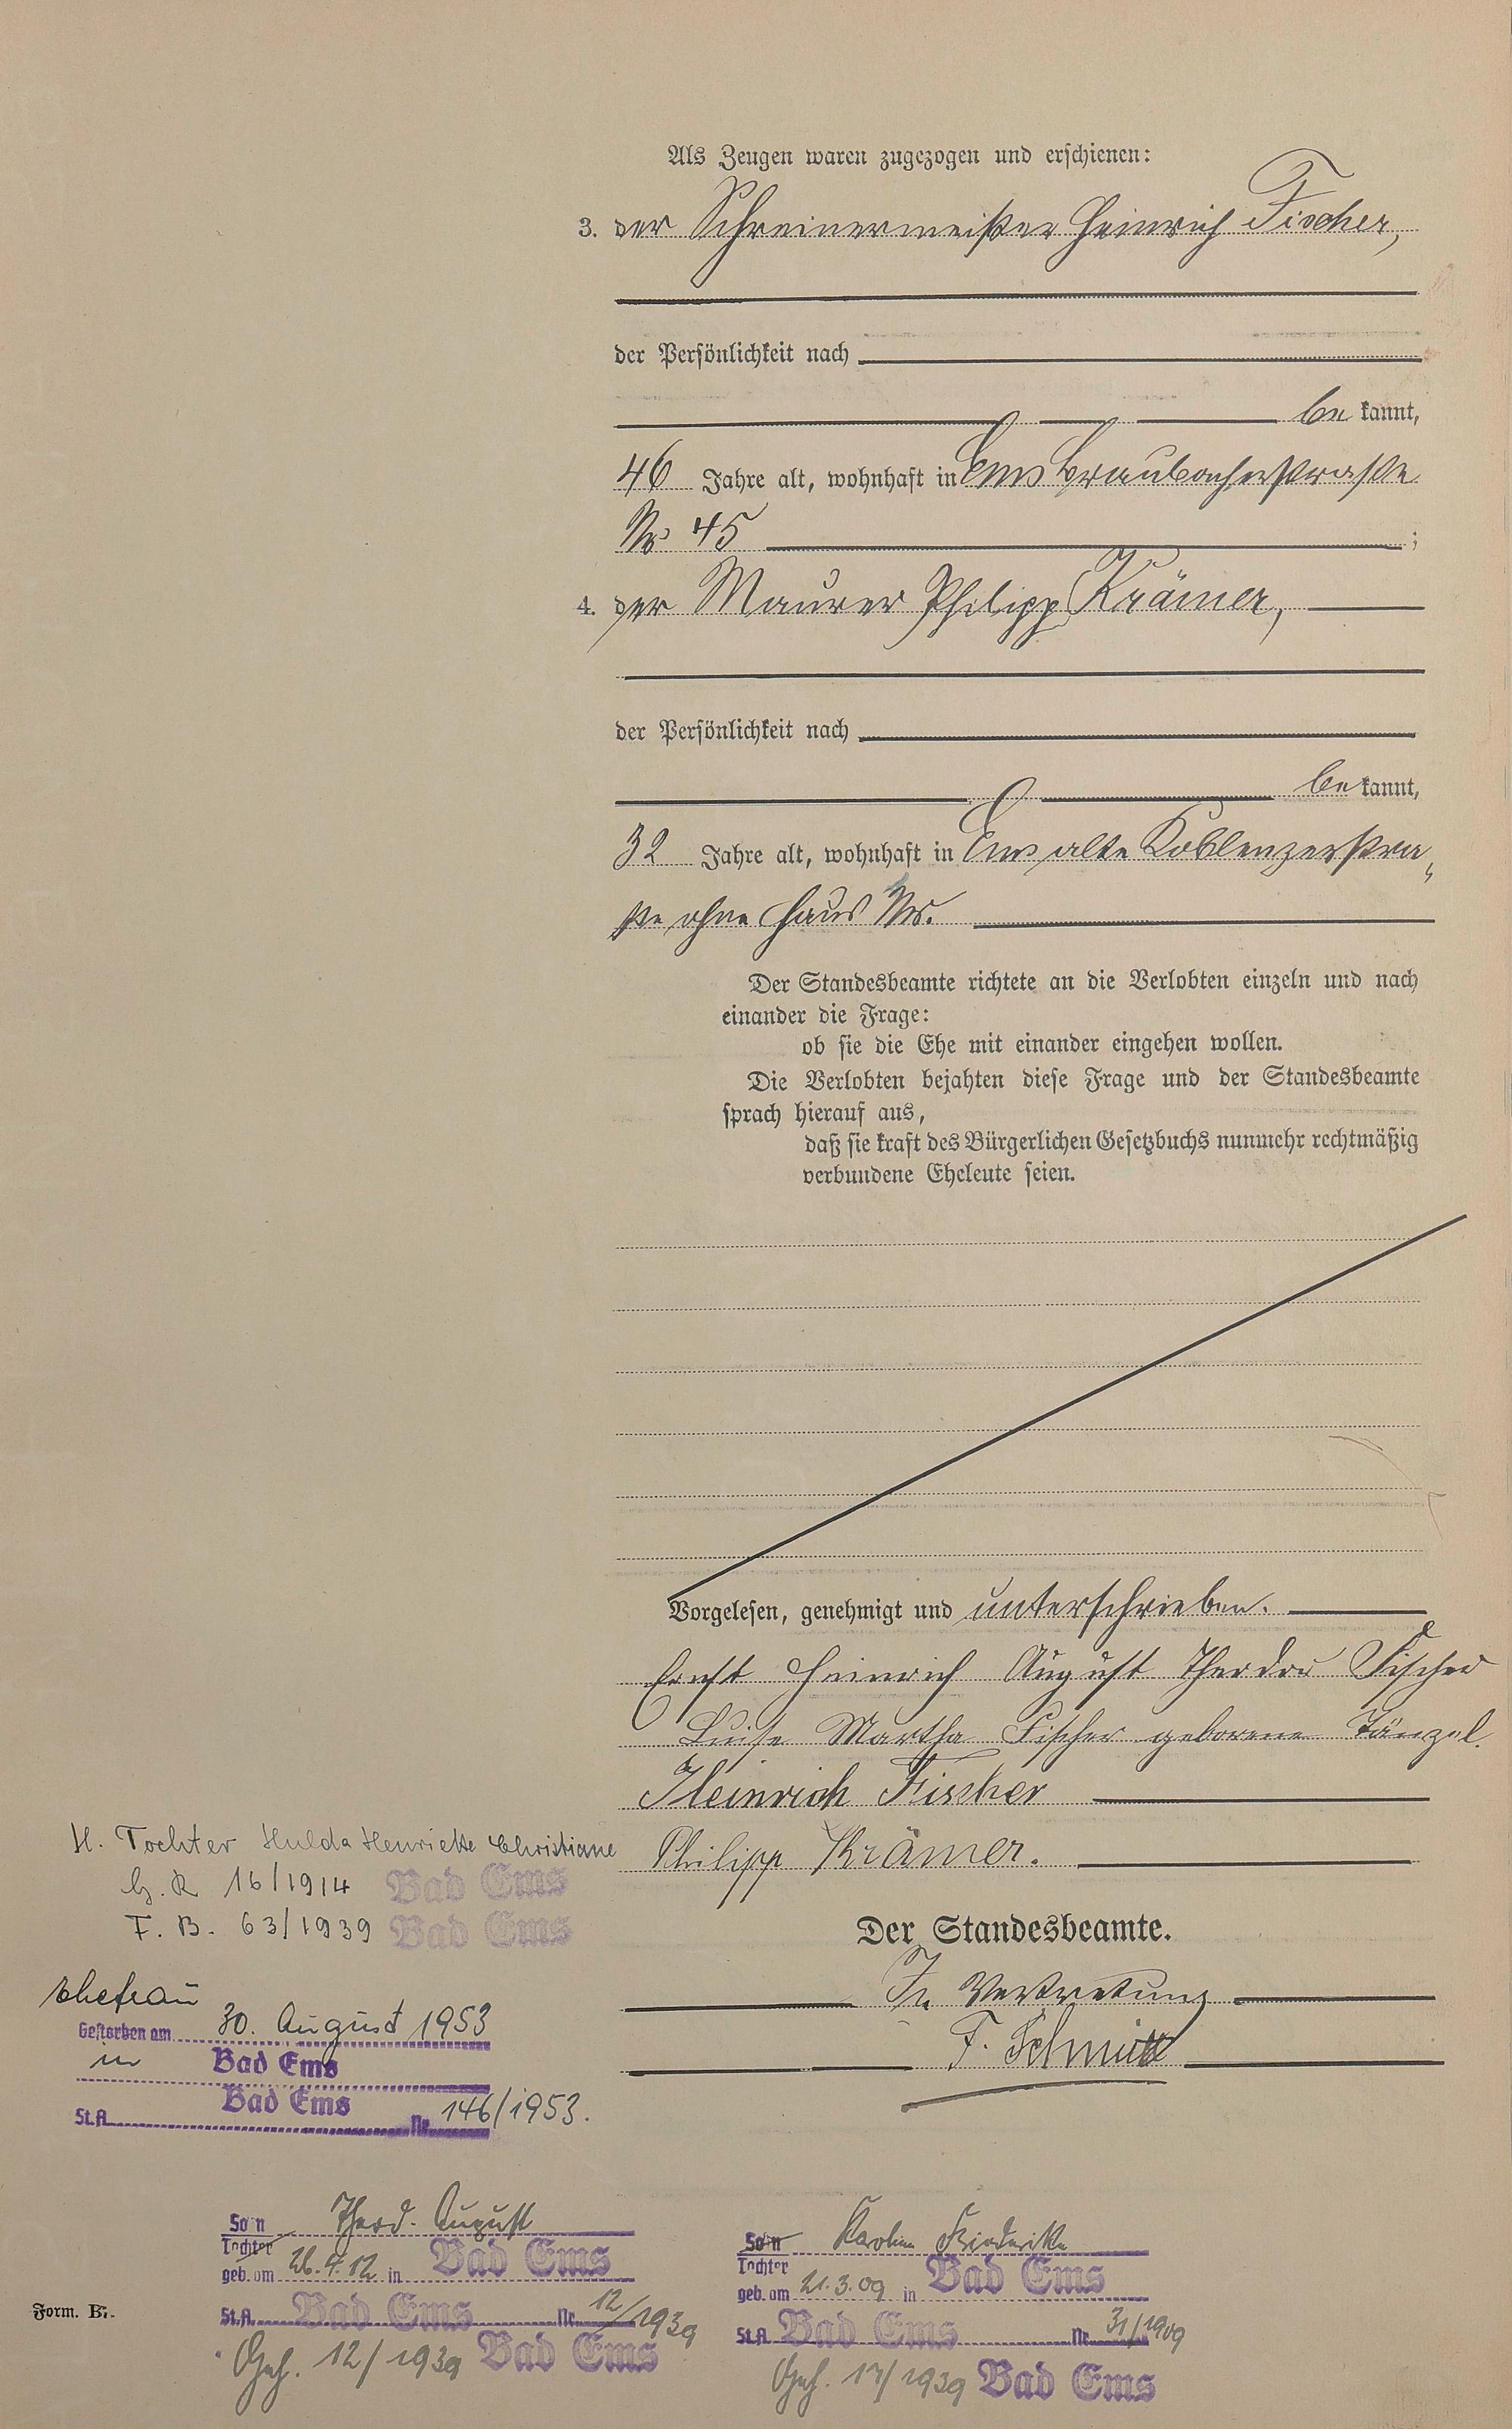 Als Zeugen waren zugezogen und erschienen:
3. der Schreinermeister Heinrich Fischer,
der Persönlichkeit nach
be kannt,
46 Jahre alt, wohnhaft in Ems Braubacherstraße
No 45 ;
4. der Maurer Philipp Krämer,
der Persönlichkeit nach
be kannt,
32 Jahre alt, wohnhaft in Ems alte Koblenzerstra„
ße ohne Haus No.
Der Standesbeamte richtete an die Verlobten einzeln und nach
einander die Frage:
ob sie die Ehe mit einander eingehen wollen.
Die Verlobten bejahten diese Frage und der Standesbeamte
sprach hierauf aus,
daß sie kraft des Bürgerlichen Gesetzbuchs nunmehr rechtmäßig
verbundene Eheleute seien.
Vorgelesen, genehmigt und unterschrieben.
Ernst Heinrich August Theodor Fischer
Luise Martha Fischer geborene Tänzel.
Heinrich Fischer
Philipp Krämer.
Der Standesbeamte.
In Vertretung
F. Schmitt
H. Tochter Hulda Henriette Christiane
G. R 16/1914 Bad Ems
F. B. 63/1939 Bad Ems
Ehefrau
Gestorben am 30. August 1953
in Bad Ems
St.A. Bad Ems Nr. 146/1953.
Sohn Theod. August
Tochter
geb. am 26.4.12 in Bad Ems
St.A. Bad Ems Nr. 12/1939
Geh. 12/1939 Bad Ems
Sohn Karoline Friederike
Tochter
geb. am 21.3.09 in Bad Ems
St.A. Bad Ems Nr. 31/1909
Geh. 17/1939 Bad Ems
Form. B.